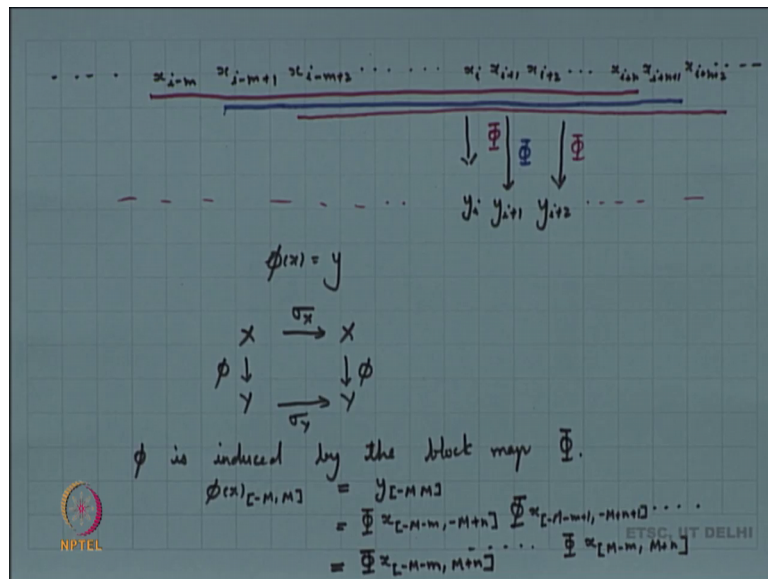 · · - · x_{i-m} x_{i-m+1} x_{i-m+2} · · · · · · x_i x_{i+1} x_{i+2} · · · x_{i+n} x_{i+n+1} x_{i+n+2} · · --
Φ Φ Φ
y_i y_{i+1} y_{i+2} · · · · ·
ϕ(x) = y
σ_X
X → X
ϕ ↓ ↓ ϕ
Y → Y
σ_Y
ϕ is induced by the block map Φ.
ϕ(x)_{[-M, M]} = y_{[-M M]}
= Φ x_{[-M-m, -M+n]} Φ x_{[-M-m+1, -M+n+1]} · · · ·
· · · · · Φ x_{[M-m, M+n]}
= Φ x_{[-M-m, M+n]}
NPTEL
ETSC, IIT DELHI